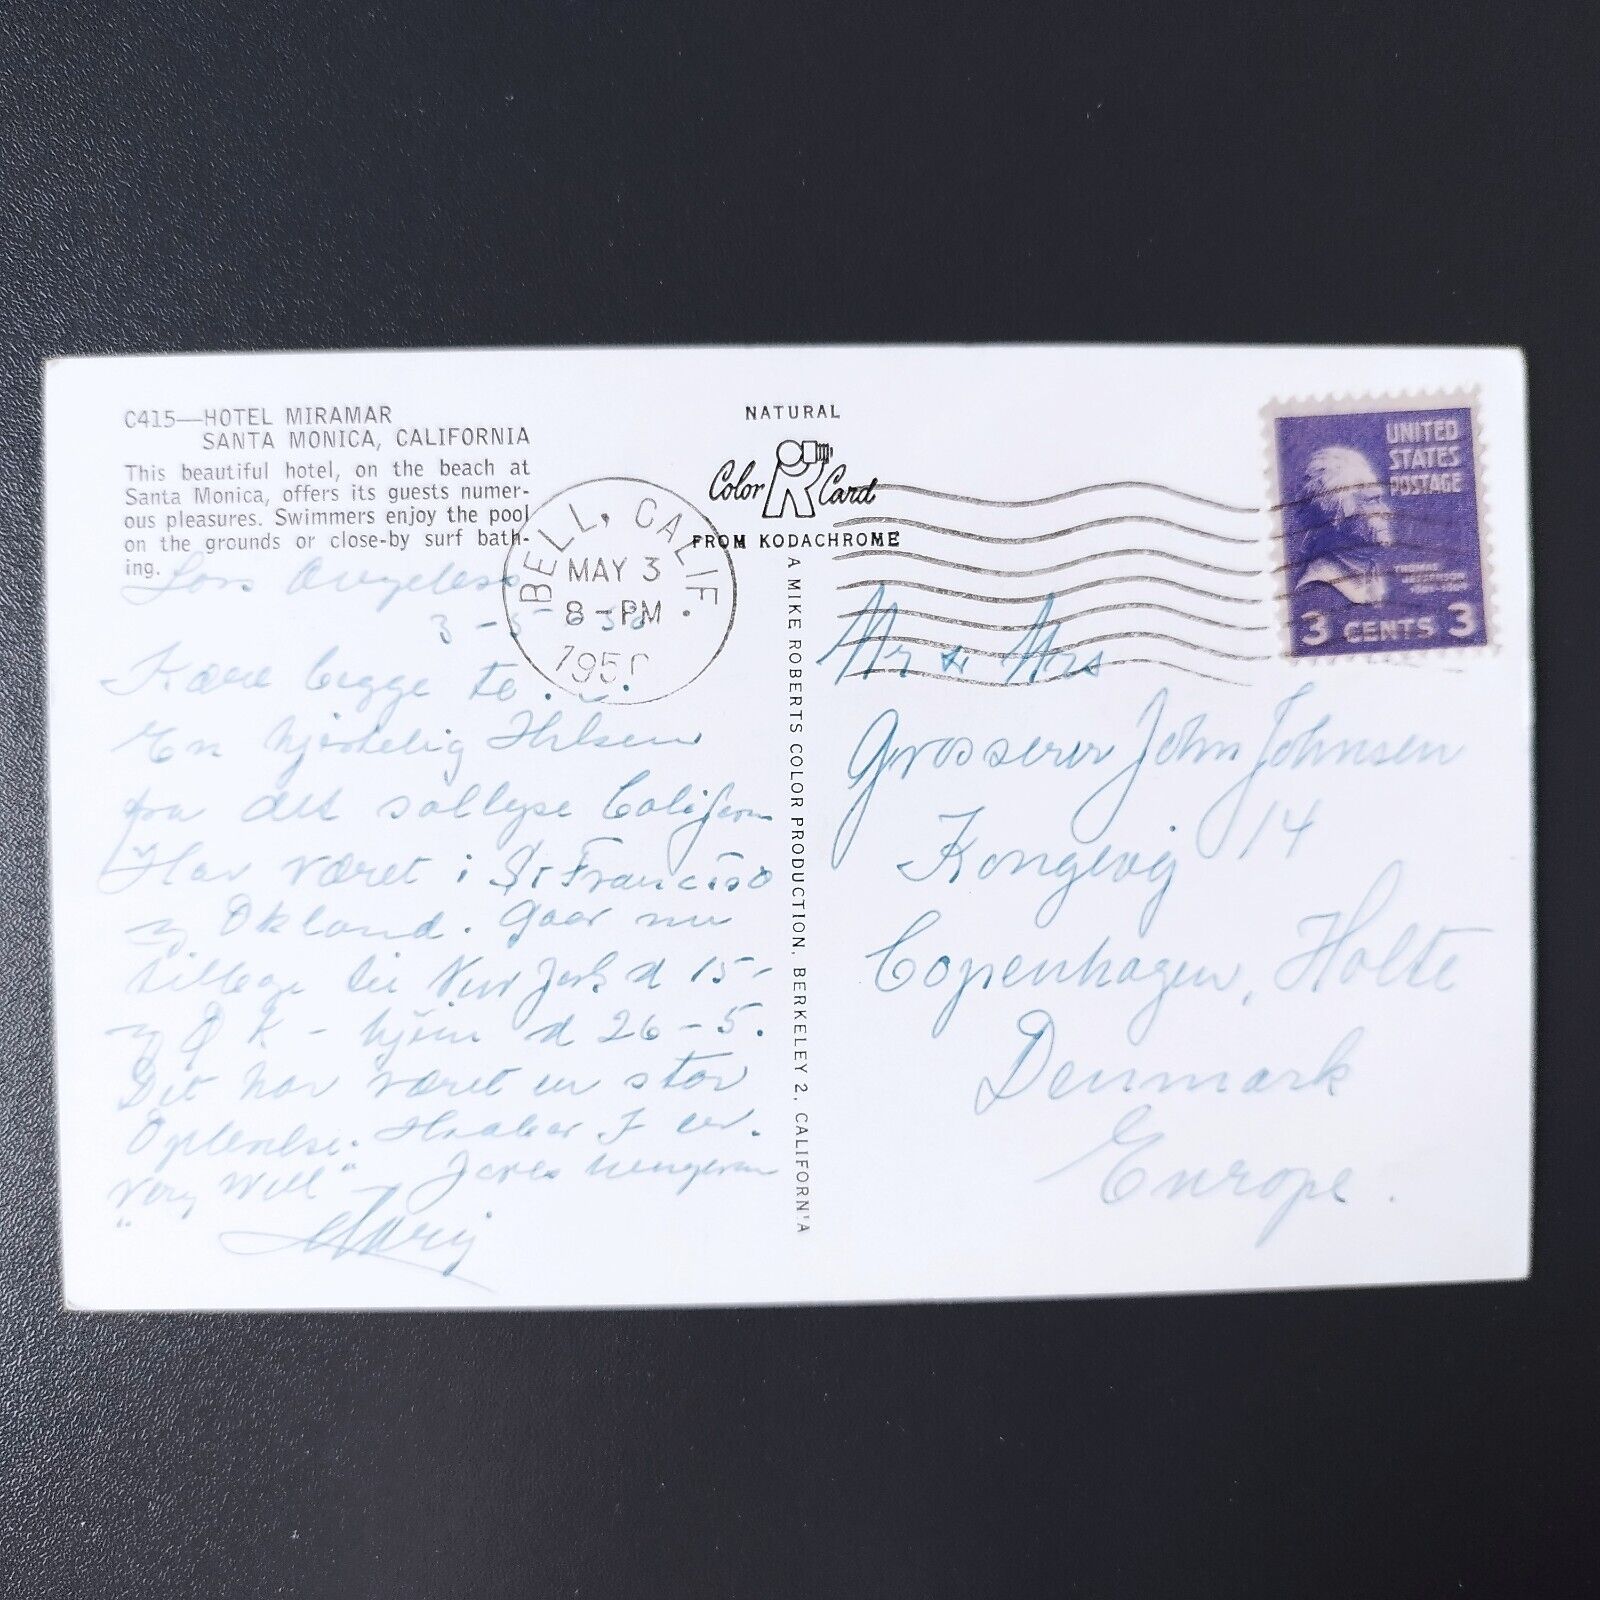 C415—HOTEL MIRAMAR
SANTA MONICA, CALIFORNIA
This beautiful hotel, on the beach at
Santa Monica, offers its guests numer-
ous pleasures. Swimmers enjoy the pool
on the grounds or close-by surf bath-
ing.
Los Angeless
Kære begge to
En hjertelig Hilsen
fra det
Har været i Sr Francisso
og Okland. Gaar nu
tilbage til New York d 15-
og hjem d 26-5.
Det har været en stor
Oplevelse. Haaber I er
"Very Well"
NATURAL
Color Card
FROM KODACHROME
BELL, CALIF.
MAY 3
8-PM
A MIKE ROBERTS COLOR PRODUCTION, BERKELEY 2, CALIFORN'A
UNITED
STATES
POSTAGE
THOMAS
JEFFERSON
3 CENTS 3
Mr & Mrs
Grosserer John Johnsen
Kongevej 14
Copenhagen, Holte
Denmark
Europe.